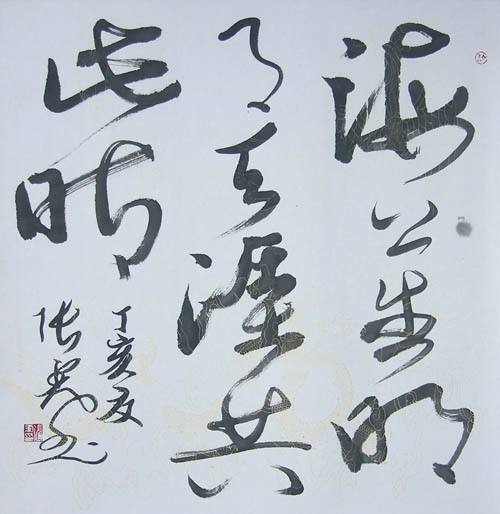 海上生明
月天涯共
此时
丁亥夏
张